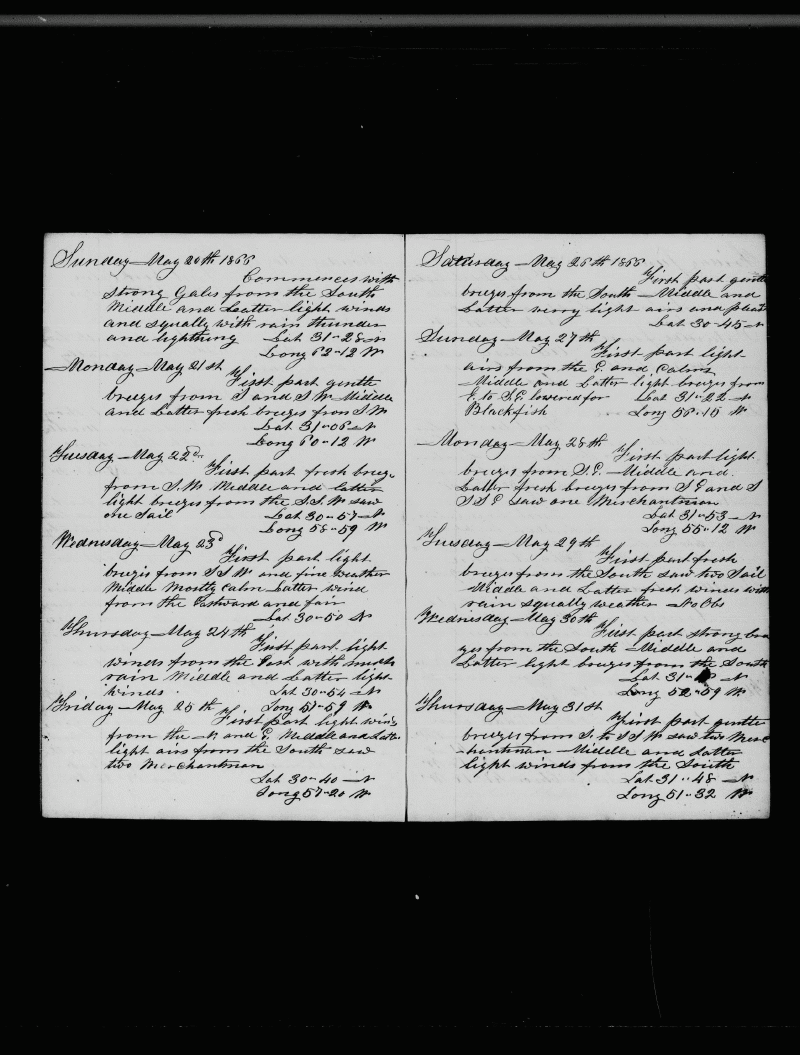 Sunday May 20th 1866
Commences with
strong Gales from the South
Middle and Latter light winds
and squally with rain thunder
and lightning Lat 31-28 N
Long 62-12 W
Monday May 21st
First part gentle
breezes from S and S W Middle
and Latter fresh breezes from S W
Lat 31-06 N
Long 60-12 W
Tuesday May 22d
First part fresh breez
from S.W. Middle and latter
light breezes from the S.S.W saw
one Sail Lat 30-57 N
Long 58-59 W
Wednesday May 23d
First part light
breezes from S S W and fine weather
Middle Mostly Calm Latter wind
from the Eastward and fair
Lat 30-50 N
Thursday May 24th
First part light
winds from the East with much
rain Middle and Latter light
winds Lat 30-54 N
Friday May 25th Long 57-59 W
First part light winds
from the N. and E. Middle and Latter
light airs from the South saw
two Merchantman
Lat 30-40 N
Long 57-20 W
Saturday May 26th 1866
First part gentle
breezes from the South Middle and
Latter verry light airs and pleast
Lat 30-45 N
Sunday May 27th
First part light
airs from the E. and Calms
Middle and Latter light breezes from
E. to S.E. lowered for Lat 31-22 N
Blackfish Long 56-15 W
Monday May 28th
First part light
breezes from S.E. Middle and
Latter fresh breezes from S E and S
S S E saw one Merchantman
Lat 31-53 N
Long 55-12 W
Tuesday May 29th
First part fresh
breezes from the South saw two Sail
Middle and Latter fresh winds with
rain squally weather No Obs
Wednesday May 30th
First part strong bree
zes from the South Middle and
Latter light breezes from the South
Lat 31- N
Long 52-59 W
Thursday May 31st
First part gentle
breezes from S. to S S W saw two Merc
hantman Middle and Latter
light winds from the South
Lat 31-48 N
Long 51-32 W